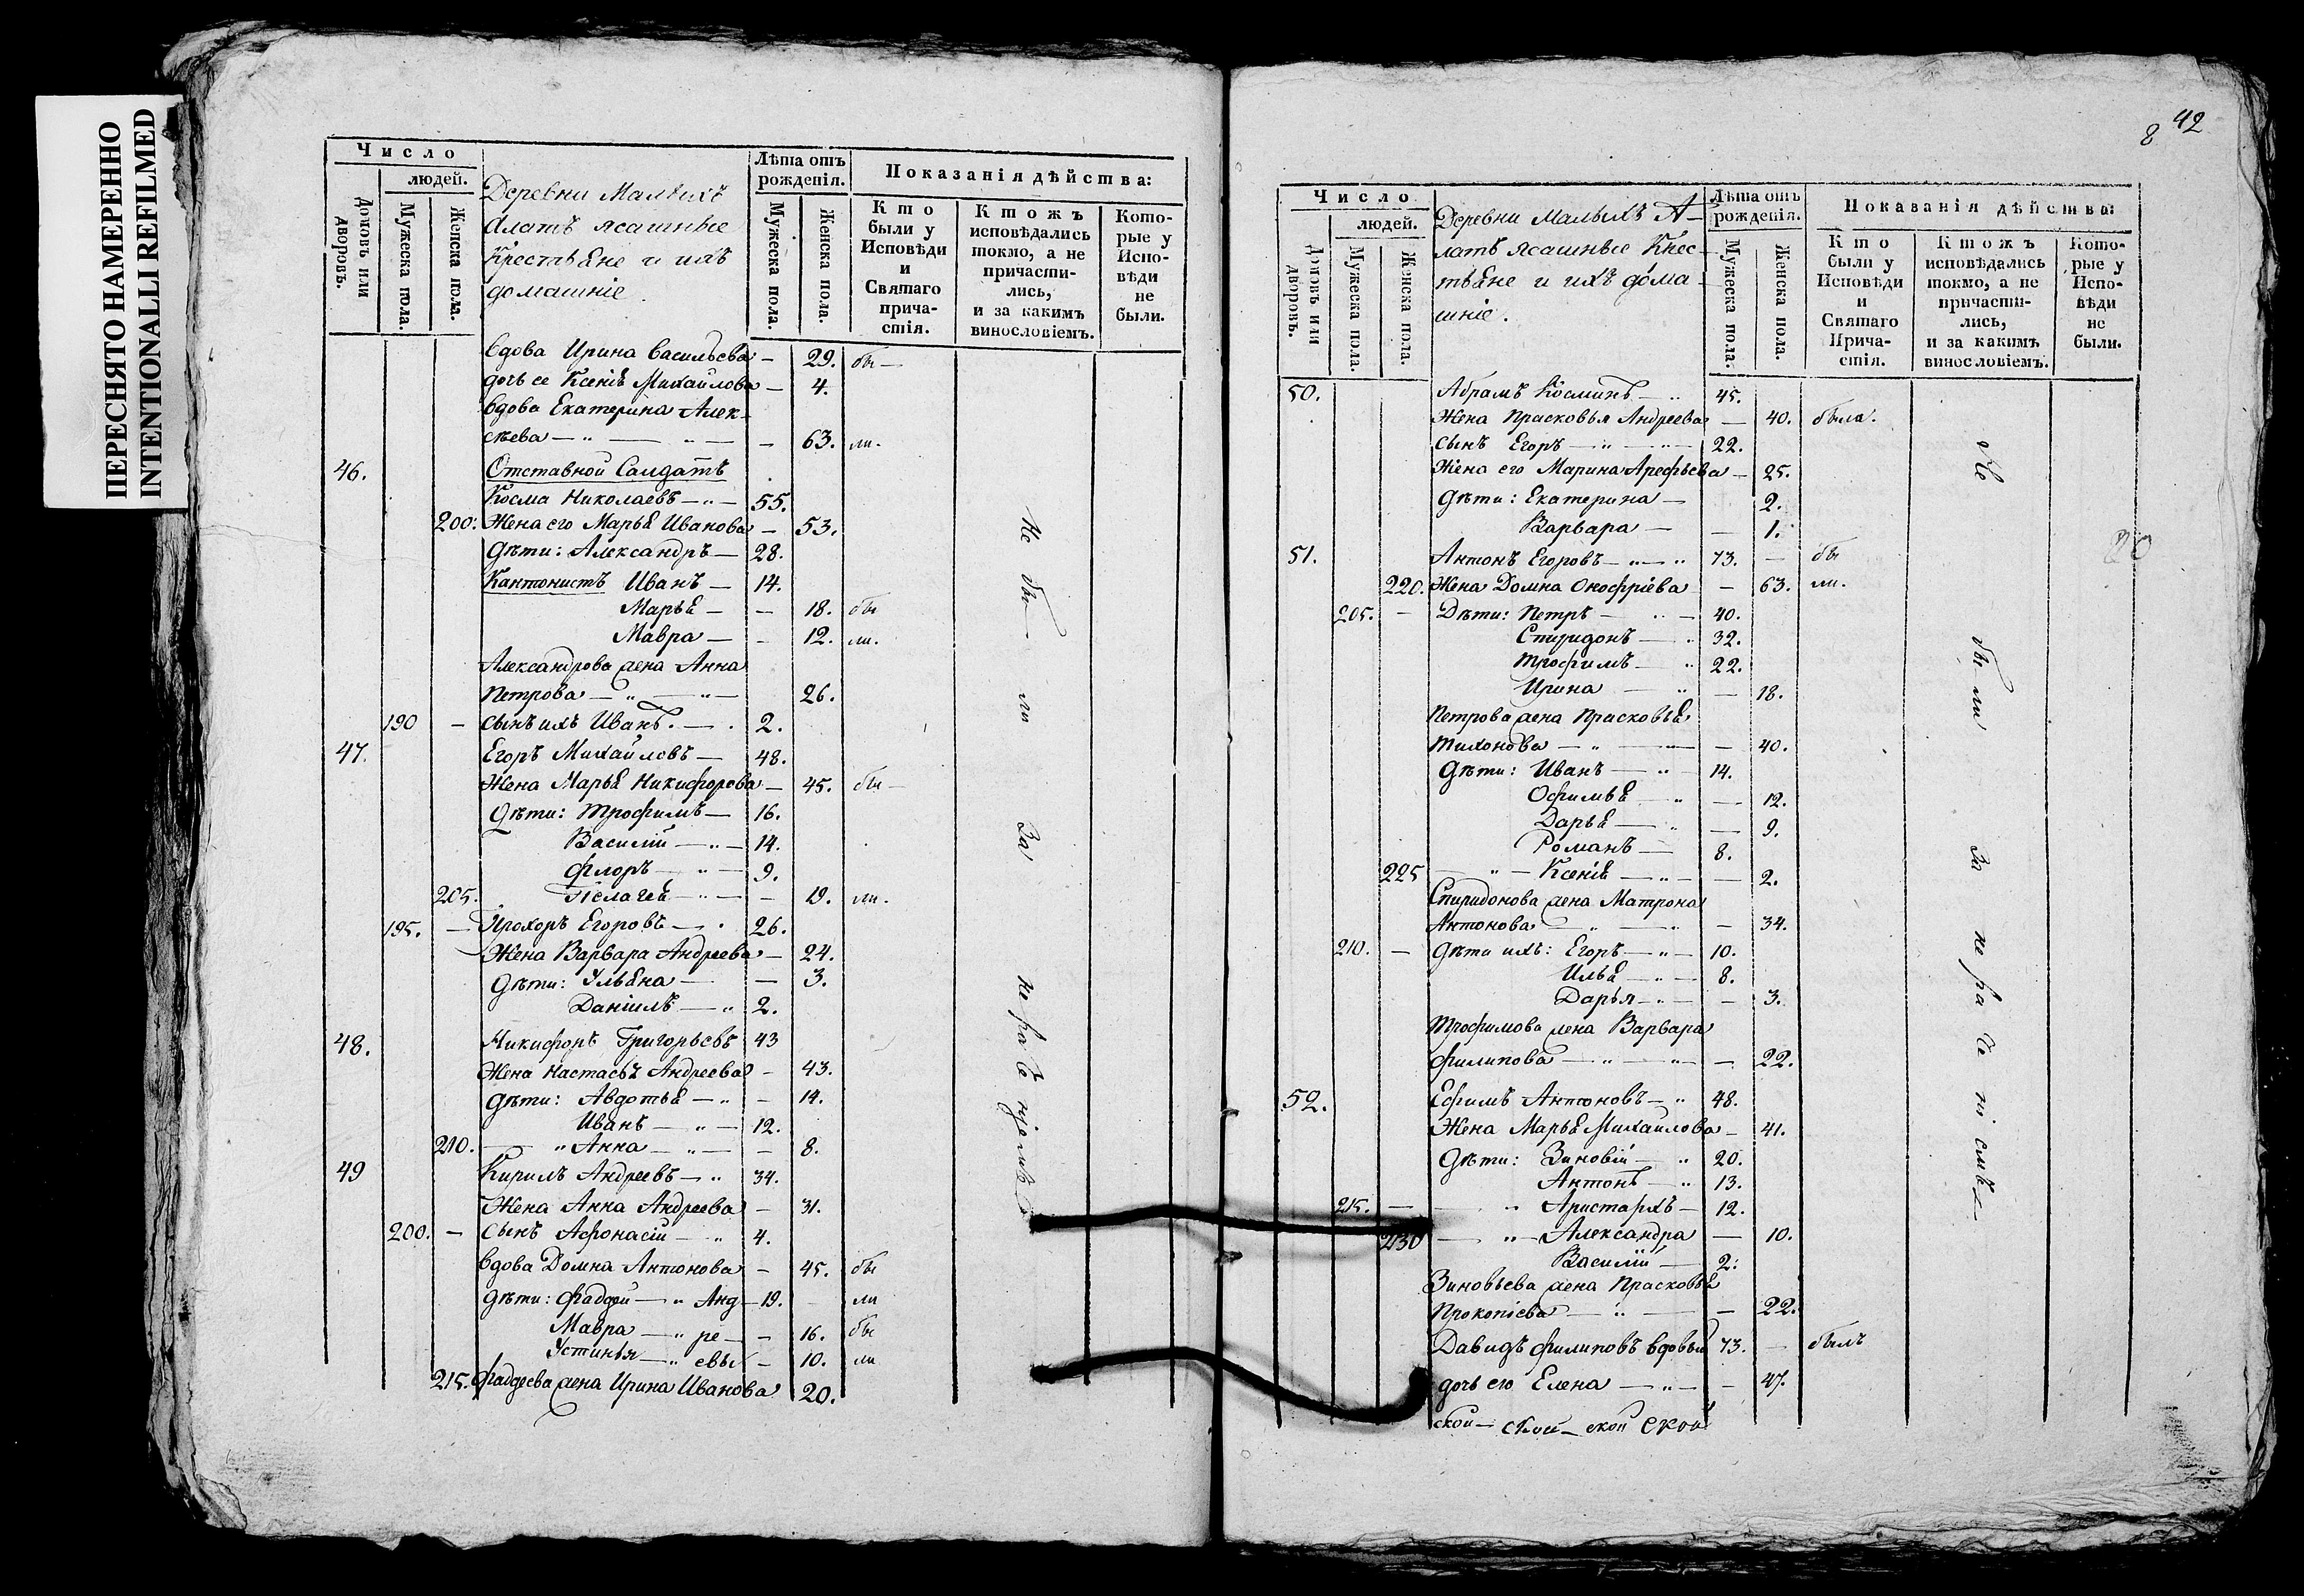 ПЕРЕСНЯТО НАМЕРЕННО
INTENTIONALLI REFILMED
Число
людей.
Домовъ или дворовъ.
Мужеска пола.
Женска пола.
Деревни Малыхъ
Алатъ ясашные
Крестьѣне и ихъ
домашніе.
Лѣта отъ рожденія.
Мужеска пола.
Женска пола.
Показанія дѣйства:
Кто были у Исповѣди и Святаго причастія.
Ктожъ исповѣдались токмо, а не причастились, и за какимъ винословіемъ.
Которые у Исповѣди не были.
вдова Ирина Васильева — 29. бы —
дочь ее Ксеніѣ Михайлова — 4.
вдова Екатерина Алек-
сѣева — 63. ли.
46. Отставной Салдатъ
Косма Николаевъ — 55.
200. Жена его Марьѣ Иванова — 53.
дѣти: Александръ — 28.
Кантонистъ Иванъ — 14.
Марьѣ — 18. бы
Мавра — 12. ли.
Александрова жена Анна
Петрова — 26.
190 — сынъ ихъ Иванъ. — 2.
47. Егоръ Михайловъ — 48.
Жена Марьѣ Никифорова — 45. бы —
Дѣти: Трофимъ — 16.
Василій — 14.
Флоръ — 9.
205. Пелагеѣ — 19. ли.
195. — Прохоръ Егоровъ — 26.
Жена Варвара Андреева — 24.
дѣти: Ульѣна — 3.
Даніилъ — 2.
48. Никифоръ Григорьевъ 43
Жена Настасьѣ Андреева — 43.
дѣти: Авдотьѣ — 14.
Иванъ — 12.
210. — Анна — 8.
49 Кирилъ Андреевъ — 34.
Жена Анна Андреева — 31.
200. — сынъ Афонасій — 4.
вдова Домна Антонова — 45. бы
дѣти: Фаддей — Анд — 19. ли
Мавра — ре — 16. бы
Устинья — евы — 10. ли
215. Фаддеева жена Ирина Иванова 20.
Не бы ли за нераченіемъ
8 42
Число
людей.
Домовъ или дворовъ.
Мужеска пола.
Женска пола.
Деревни Малыхъ А-
латъ Ясашные Крес-
тьѣне и ихъ дома-
шніе.
Лѣта отъ рожденія.
Мужеска пола.
Женска пола.
Показанія дѣйства:
Кто были у Исповѣди и Святаго Причастія.
Ктожъ исповѣдались токмо, а не причастились, и за какимъ винословіемъ.
Которые у Исповѣди не были.
50. Абрамъ Косминъ — 45.
Жена Прасковья Андреева — 40. была.
сынъ Егоръ — 22.
Жена его Марина Арефьева — 25.
дѣти: Екатерина — 2.
Варвара — 1.
51. Антонъ Егоровъ — 73. — бы
220. Жена Домна Онофріева — 63. ли.
205. — Дѣти: Петръ — 40.
Спиридонъ — 32.
Трофимъ — 22.
Ирина — 18.
Петрова жена Прасковьѣ
Тихонова — 40.
Дѣти: Иванъ — 14.
Офимьѣ — 12.
Дарьѣ — 9.
Романъ — 8.
225 — Ксеніѣ — 2.
Спиридонова жена Матрона
Антонова — 34.
210. — дѣти ихъ: Егоръ — 10.
Ильѣ — 8.
Дарья — 3.
Трофимова жена Варвара
Филипова — 22.
52. Ефимъ Антоновъ — 48.
Жена Марьѣ Михаилова — 41.
дѣти: Зиновій — 20.
Антонъ — 13.
215. — Аристархъ — 12.
230 — Александра — 10.
Василій — 2.
Зиновьева жена Прасковьѣ
Прокопіева — 22.
Давидъ Филиповъ вдовый 73. — былъ
дочь его Елена — 47.
ской — ской — ской ской
Не бы ли за нераченіемъ —
20